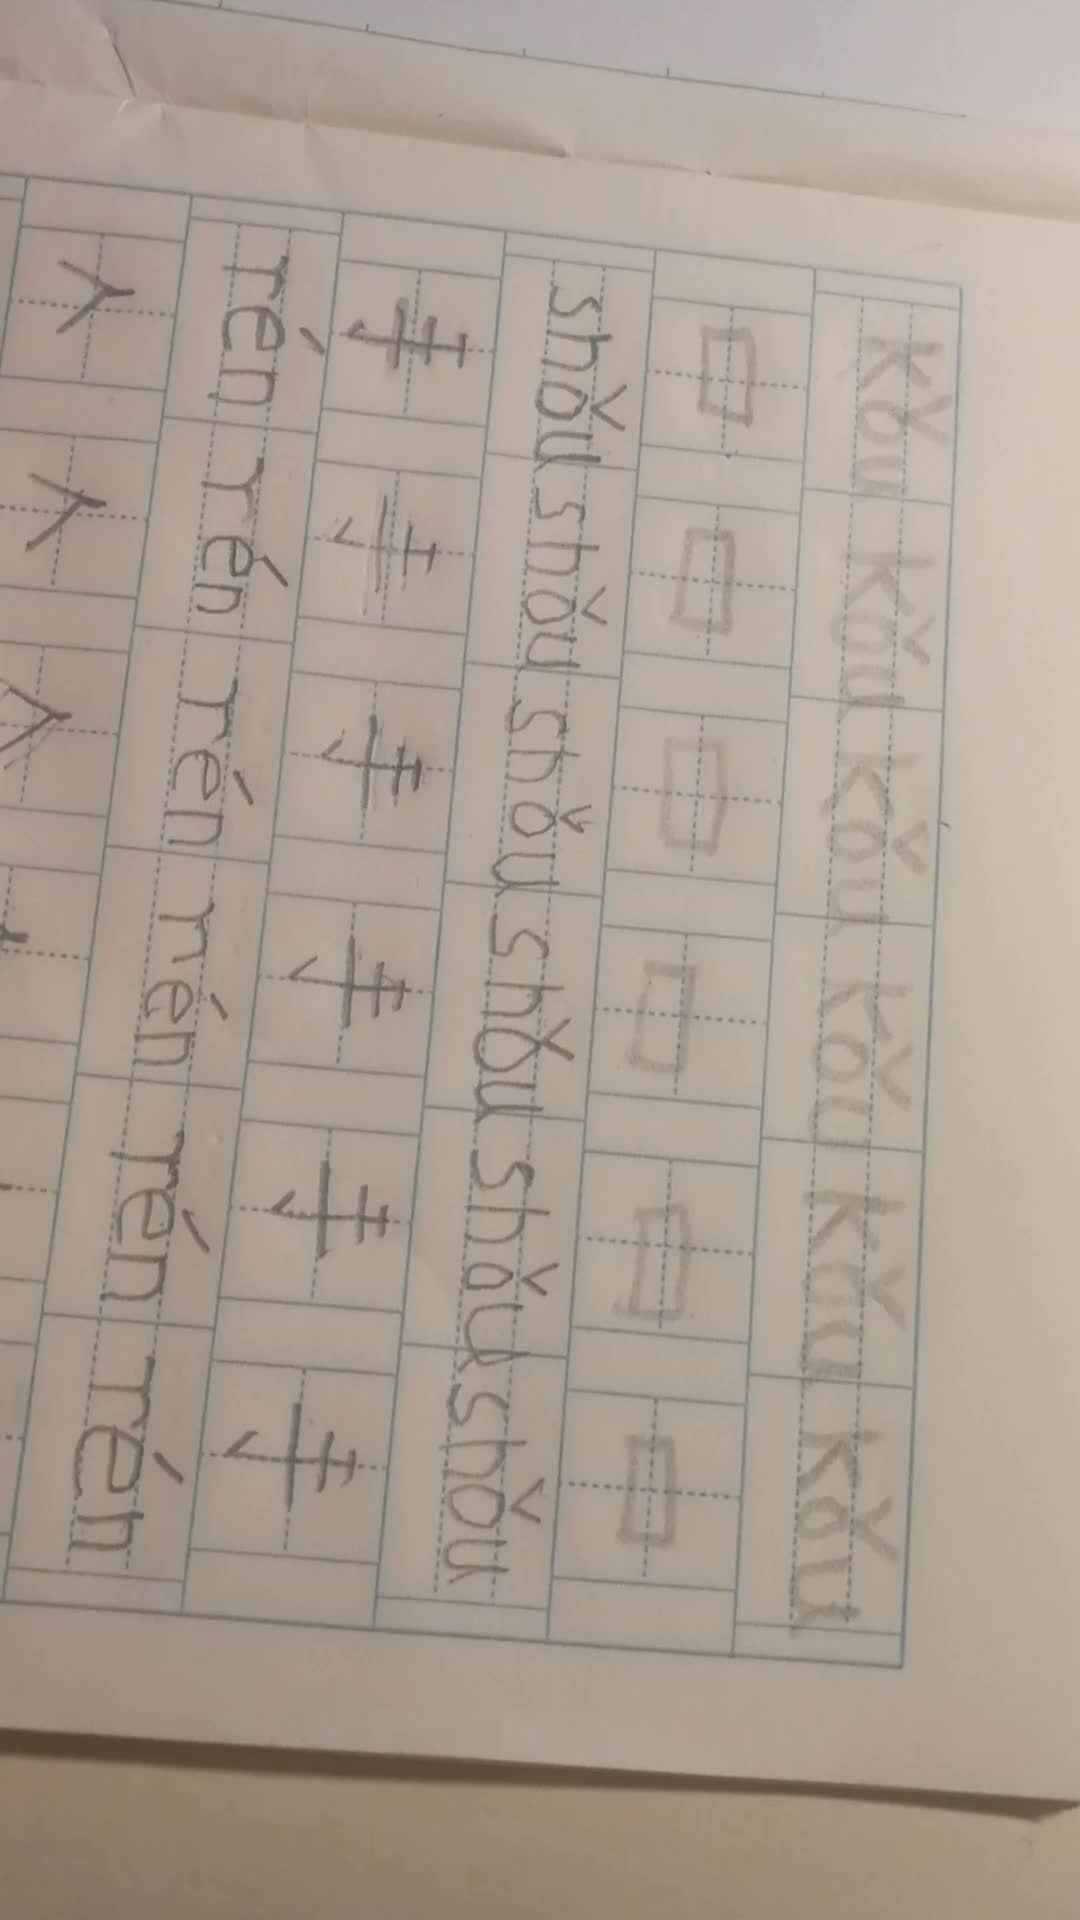 kǒu kǒu kǒu kǒu kǒu kǒu
口 口 口 口 口 口
shǒu shǒu shǒu shǒu shǒu shǒu
手 手 手 手 手 手
rén rén rén rén rén rén
人 人 人